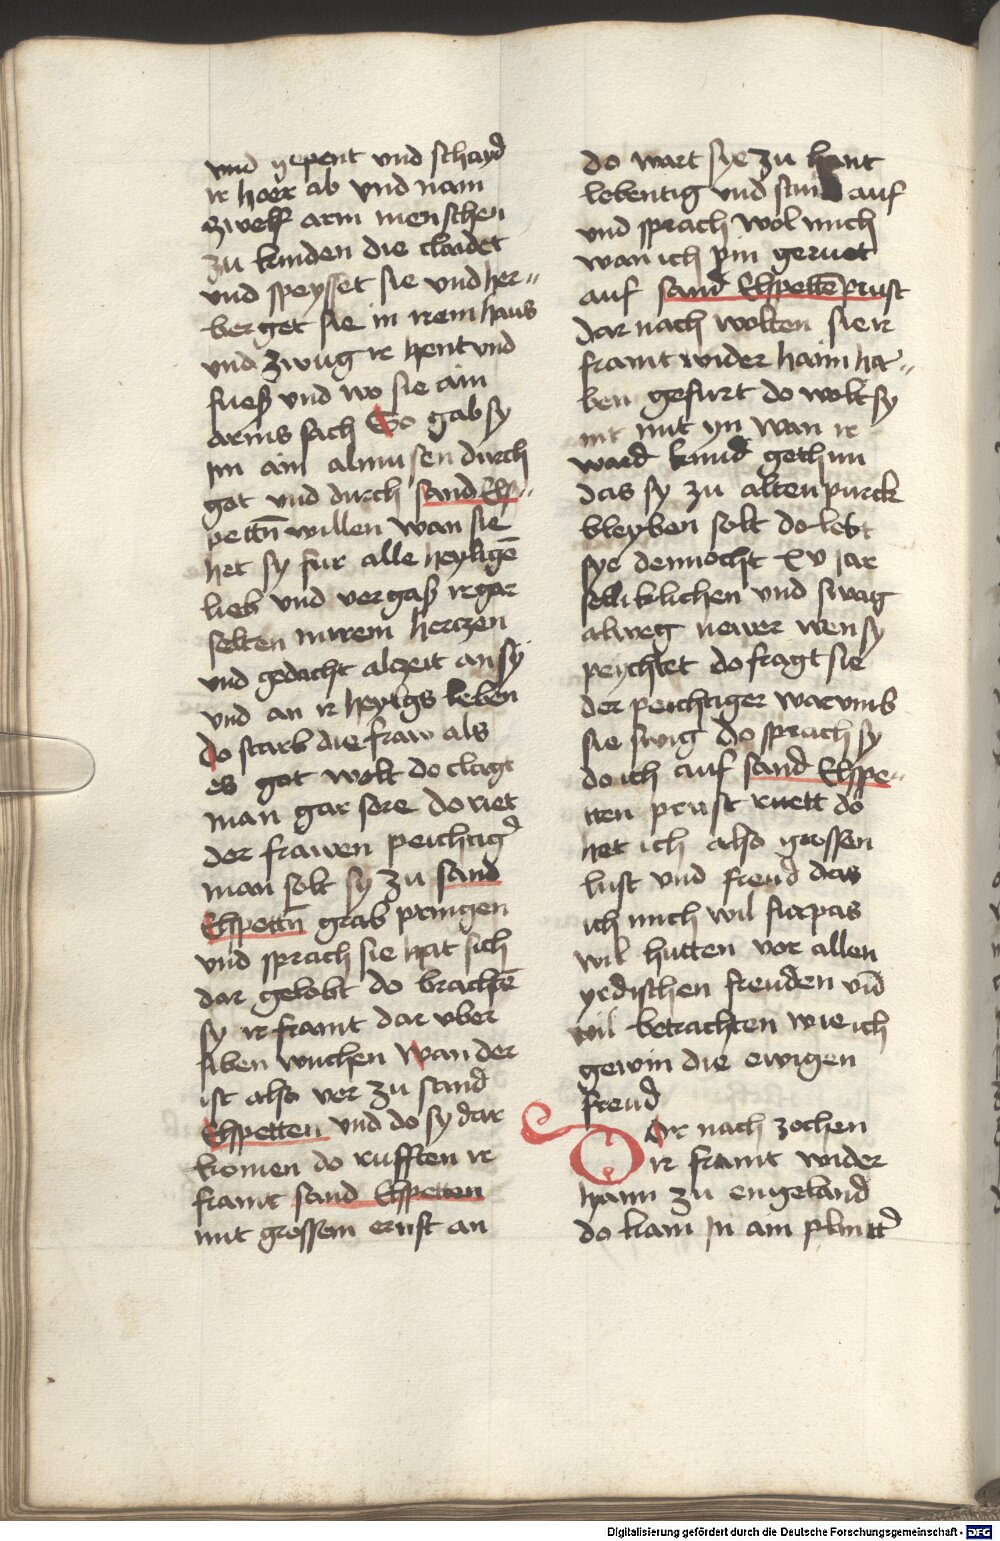 und gepent und schayd
ir haer ab und nam
zwelf arm menschen
zu kinden die claidet
und speysset sie und her-
berget sie in irem haus
und zwug ir hent und
fueß und wo sie ain
arms sach Do gab sy
im ain almusen durch
got und durch sand Els-
pettn̄ willen wan sie
het sy fur alle heyligē
lieb und vergaß ir gar
selten in irem herczen
und gedacht alczeit an sy
und an ir heyligs leben
do starb die fraw als
es got wolt do clagt
man gar sere do riet
der frawen peichtig͛
man solt sy zu sand
Elspettn̄ grab pringen
und sprach sie hat sich
dar gelobt do brachtē
sy ir framt dar vber
siben wuchen wan der
ist also ver zu sand
Elspetten und do sy dar
komen do rufften ir
framt sand Elspetten
mit grossem ernst an
do wart sye zu hant
lebentig und stund auf
und sprach wol mich
wan ich pin geruet
auf sand Elspettē prust
dar nach wolten sie ir
framt wider haim ha-
ben gefurt do wolt sy
nit mit yn wan ir
ward kund gethun
das sy zu altenpurck
bleyben solt do lebt
sye dennocht xv jar
seliklichen und swaig
alweg newer wen sy
peichtet do fragt sie
der peichtiger warumb
sie swig do sprach sy
do ich auf sand Elspe-
tten prust ruett do
het ich also grossen
lust und freud das
ich mich wil furpas
wil hutten vor allen
yrdischen freuden vn̄
wil betrachten wie ich
gewin die ewigen
freud
Dor nach zochen
ir framt wider
haim zu engeland
do kam in ain plintt͛
Digitalisierung gefördert durch die Deutsche Forschungsgemeinschaft - DFG